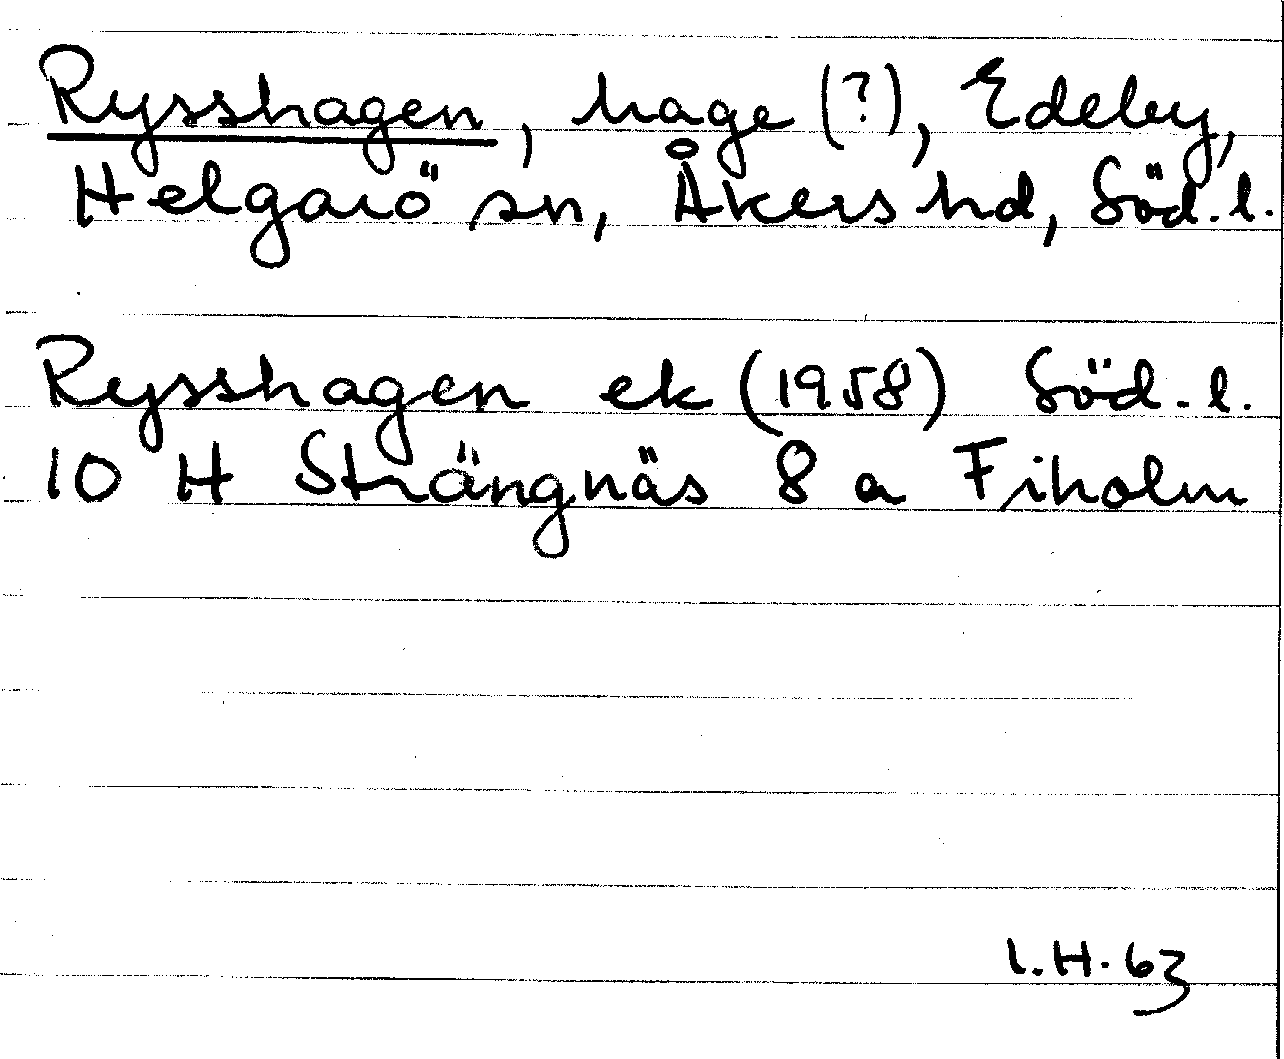 Rysshagen, hage (?), Edeby,
Helgarö sn, Åkers hd, Söd. l.
Rysshagen ek (1958) Söd. l.
10 H Strängnäs 8 a Fiholm
I.H. 63